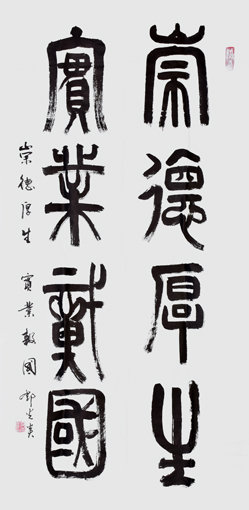 崇德厚生
實業報國
崇德厚生 實業報國